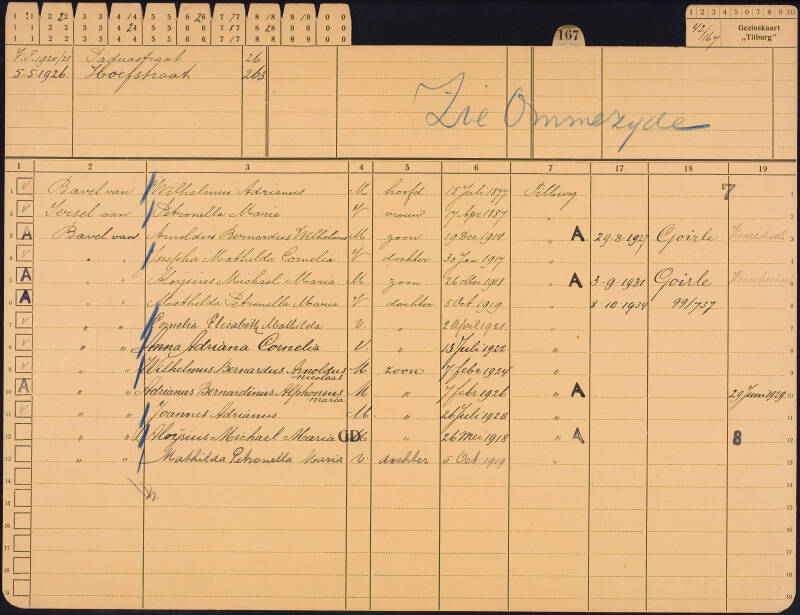 167
42/167
Gezinskaart
„Tilburg"
V.T. 1920/21 Paduastraat 26
5.5.1926. Hoefstraat 263
Zie Ommezyde
1 2 3 4 5 6 7 17 18 19
1 Bavel van Wilhelmus Adrianus M. hoofd 15 Juli 1877 Tilburg 7
2 Iersel van Petronella Maria V vrouw 17 Apr. 1887 „
3 A Bavel van Arnoldus Bernardus Wilhelmus M zoon 19 Dec 1914 „ A 29-8-1927 Goirle
4 „ „ Josepha Mathilda Cornelia V dochter 30 Jan 1917 „
5 A „ „ Aloysius Michael Maria M. zoon 26 Mei 1918 „ A 3-9-1931 Goirle
6 A „ „ Mathilda Petronella Maria V dochter 5 Oct 1919 „ 8-10-1934 99/737
7 „ „ Cornelia Elisabeth Mathilda V. „ 2 April 1921 „
8 „ „ Anna Adriana Cornelia V. „ 13 Juli 1922 „
9 „ „ Wilhelmus Bernardus Arnoldus Nicolaas M zoon 7 febr 1924 „
10 A „ „ Adrianus Bernardinus Alphonsus Maria M „ 7 febr 1926 „ A 29 Juni 1929
11 „ „ Joannes Adrianus M. „ 26 Juli 1928 „
12 „ „ Aloÿsius Michael Maria GD M „ 26 Mei 1918 „ A 8
13 „ „ Mathilda Petronella Maria v. dochter 5 Oct. 1919 „
14
15
16
17
18
19